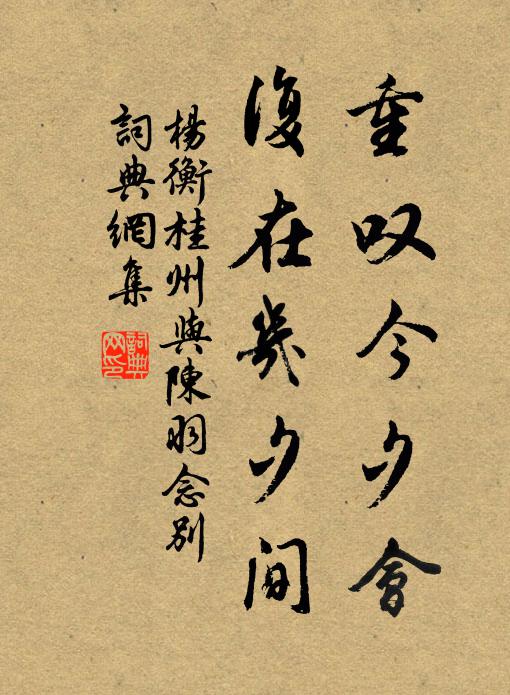 重叹今夕會
復在幾夕間
楊衡桂州與陳羽念別
詞典網集
詞典网印